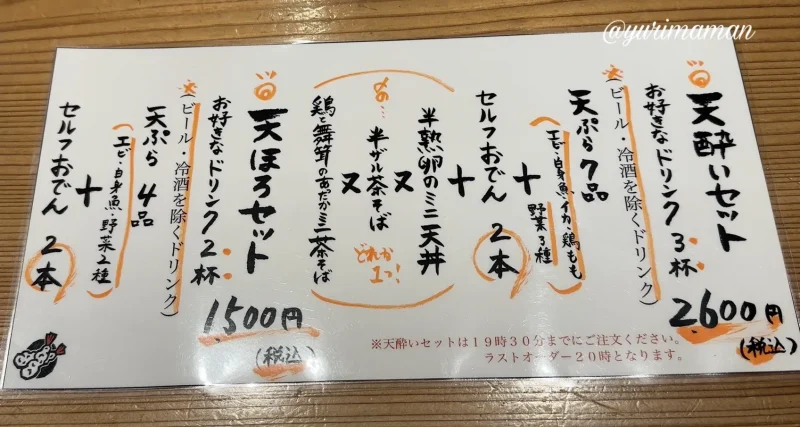 @yurimaman
天酔いセット
お好きなドリンク3杯
(ビール・冷酒を除くドリンク)
天ぷら7品
(エビ・白身魚・イカ・鶏もも
野菜3種)
+
セルフおでん2本
+
半熟卵のミニ天丼
又
〆の…半ザル茶そば
又
鶏と舞茸のあたたかミニ茶そば
どれか
1つ!
2,600円
(税込)
天ほろセット
お好きなドリンク2杯
(ビール・冷酒を除くドリンク)
天ぷら4品
(エビ・白身魚・野菜2種)
+
セルフおでん2本
1,500円
(税込)
※天酔いセットは19時30分までにご注文ください。
ラストオーダー20時となります。